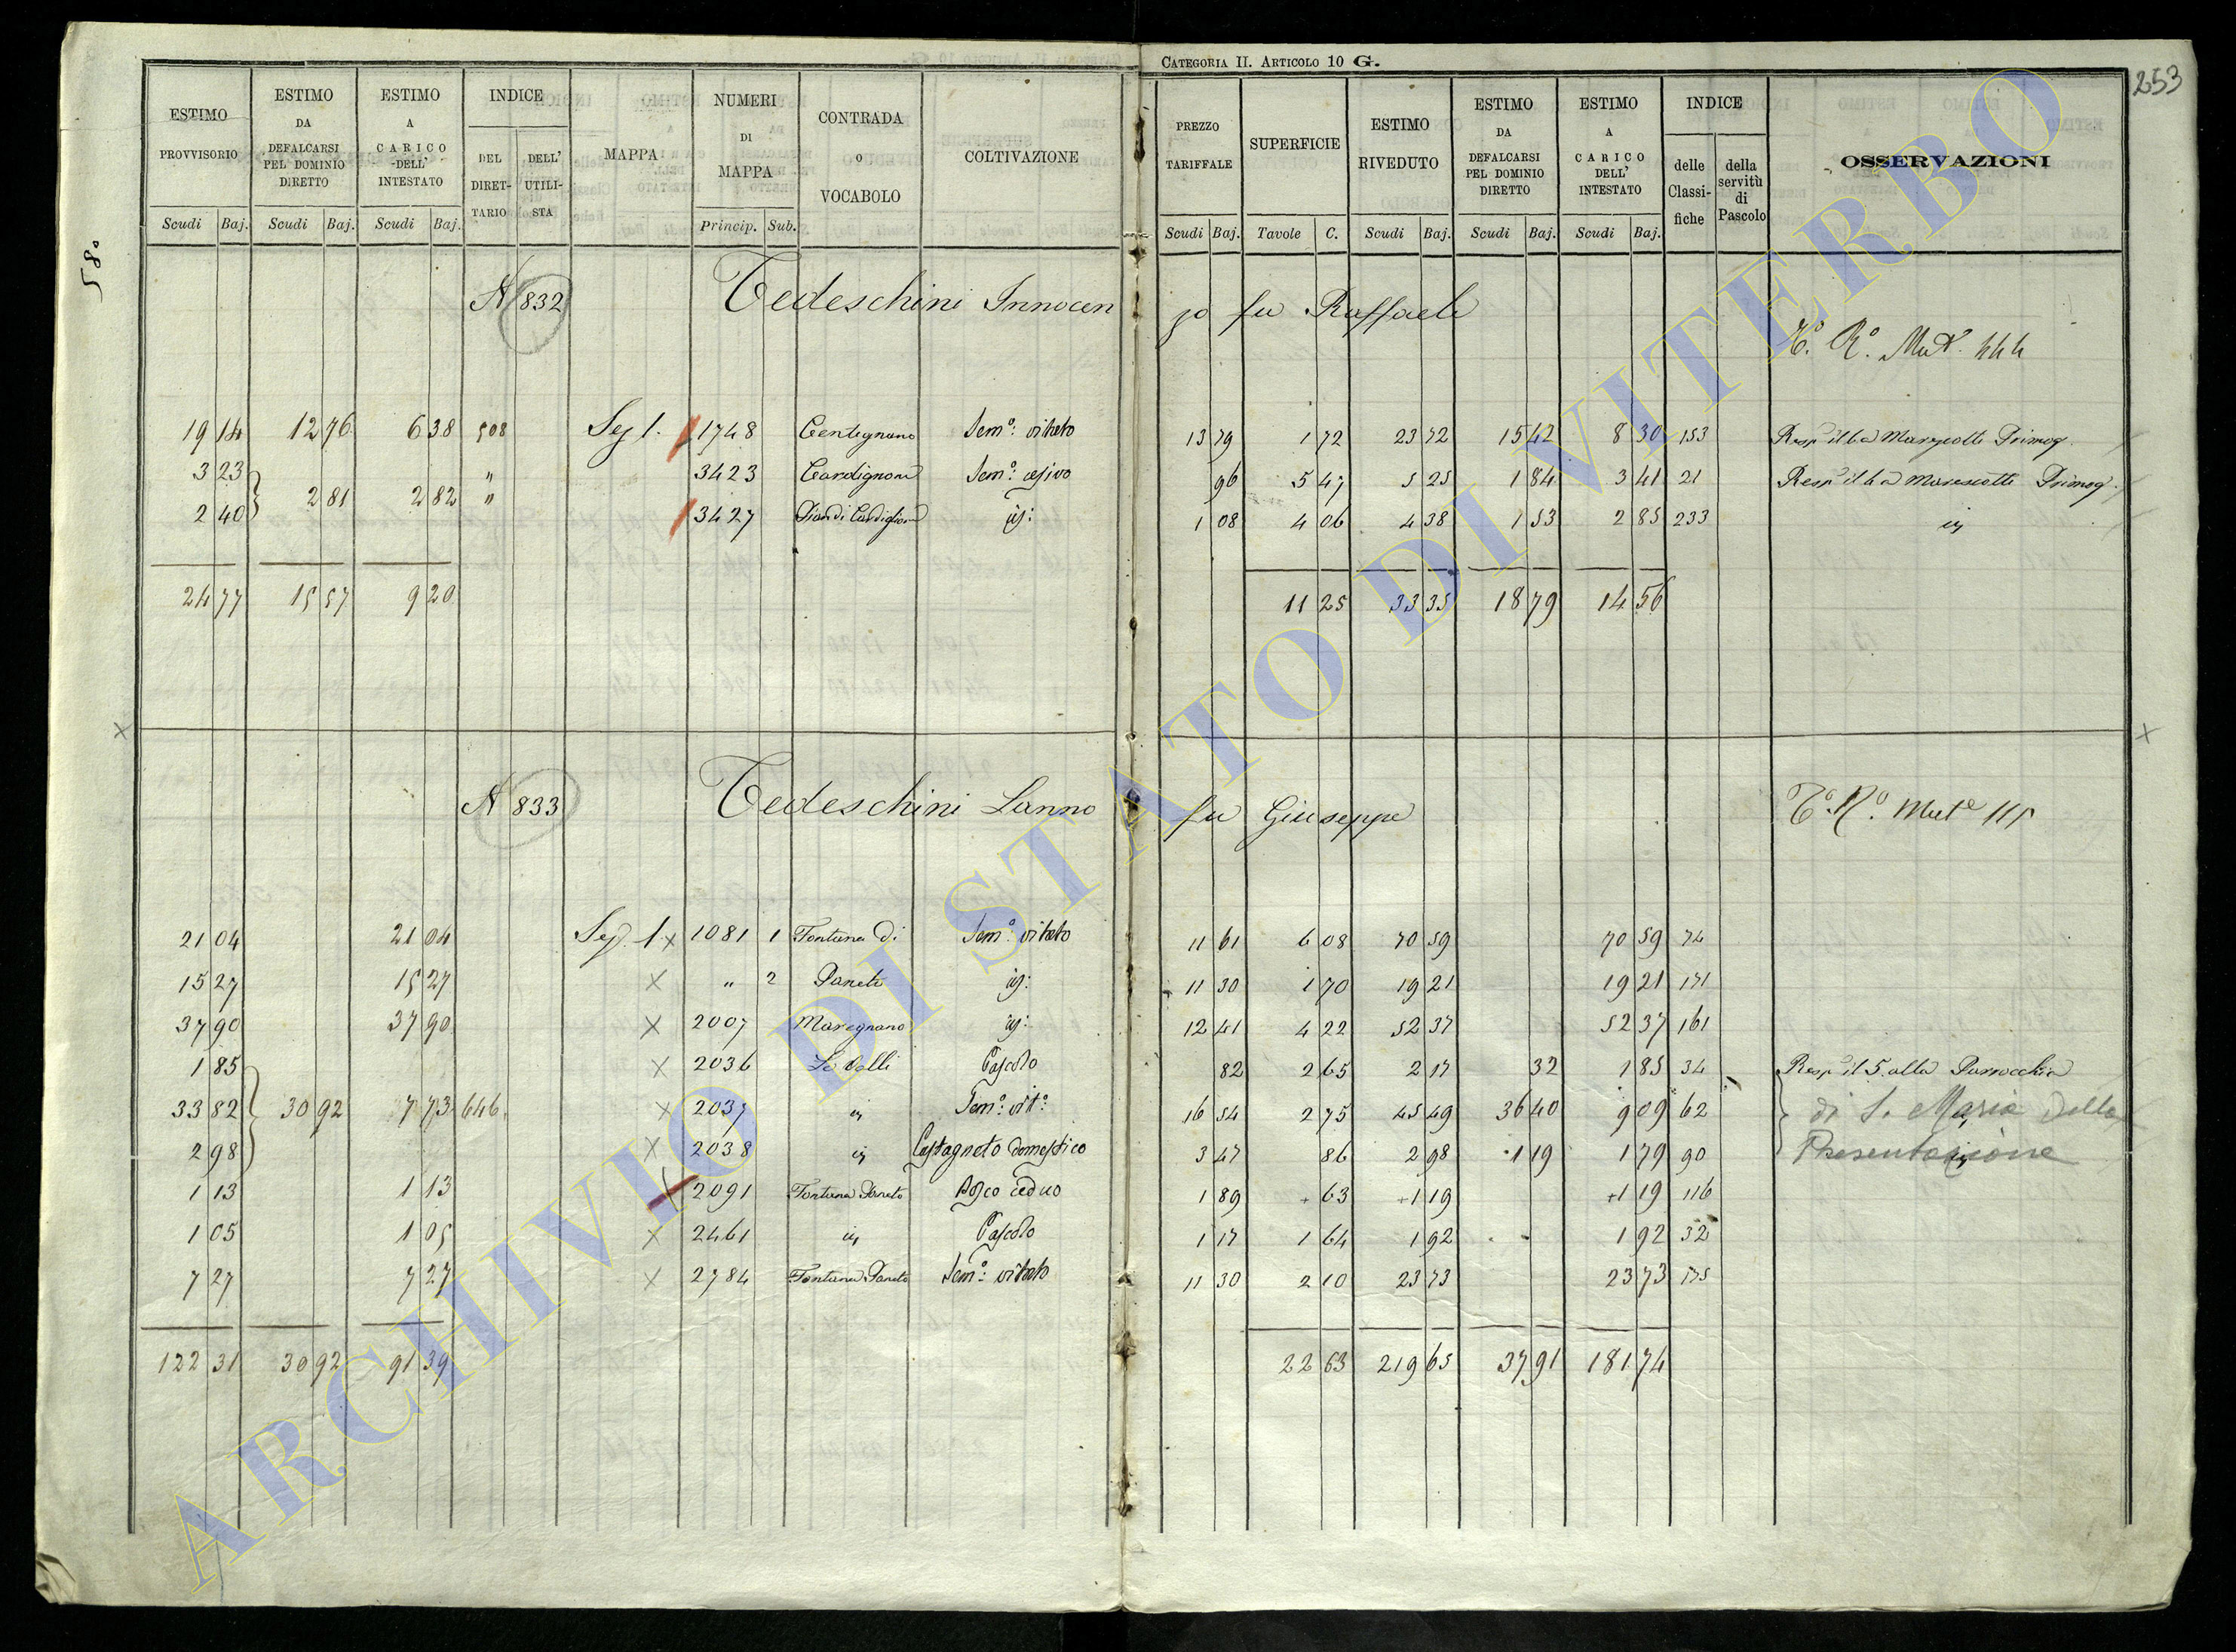 CATEGORIA II. ARTICOLO 10 G.
253
580
ESTIMO PROVVISORIO Scudi Baj. ESTIMO DA DEFALCARSI PEL DOMINIO DIRETTO Scudi Baj. ESTIMO A CARICO DELL' INTESTATO Scudi Baj. INDICE DEL DIRET-TARIO DELL' UTILI-STA MAPPA NUMERI DI MAPPA Princip. Sub. CONTRADA O VOCABOLO COLTIVAZIONE PREZZO TARIFFALE Scudi Baj. SUPERFICIE Tavole C. ESTIMO RIVEDUTO Scudi Baj. ESTIMO DA DEFALCARSI PEL DOMINIO DIRETTO Scudi Baj. ESTIMO A CARICO DELL' INTESTATO Scudi Baj. INDICE delle Classi-fiche della servitù di Pascolo OSSERVAZIONI
N 832 Tedeschini Innocen zo fu Raffaele
Mut. 444
19 14 12 76 6 38 508 Sez I. 1748 Centignano Sem.º vitato 13 79 1 72 23 72 15 42 8 30 153 Marescotti Primog.
3 23 " 3423 Sem.º 96 5 47 5 25 1 84 3 41 21 Marescotti Primog.
2 40 2 81 2 82 " 3427 1 08 4 06 4 38 1 53 2 85 233
24 77 15 57 9 20 11 25 33 35 18 79 14 56
N 833 Tedeschini Lanno fu Giuseppe
115
21 04 21 04 Sez. I. x 1081 1 Fontana di Sem.º vitato 11 61 6 08 70 59 70 59 74
15 27 15 27 x " 2 Paneto 11 30 1 70 19 21 19 21 171
37 90 37 90 x 2007 Maregnano 12 41 4 22 52 37 52 37 161
1 85 x 2036 Le Valli Pascolo 82 2 65 2 17 32 1 85 34 Resp. il 5. alla Parrocchia
33 82 30 92 7 73 646 x 2037 Sem.º vit.º 16 54 2 75 45 49 36 40 9 09 62 di S. Maria della
2 98 x 2038 Castagneto domestico 3 47 86 2 98 1 19 1 79 90 Presentazione
1 13 1 13 x 2091 Fontana Paneto Bosco ceduo 1 89 63 1 19 1 19 116
1 05 1 05 x 2461 Pascolo 1 17 1 64 1 92 1 92 32
7 27 7 27 x 2784 Fontana Paneto Sem.º vitato 11 30 2 10 23 73 23 73 175
122 31 30 92 91 39 22 63 219 65 37 91 181 74
ARCHIVIO DI STATO DI VITERBO